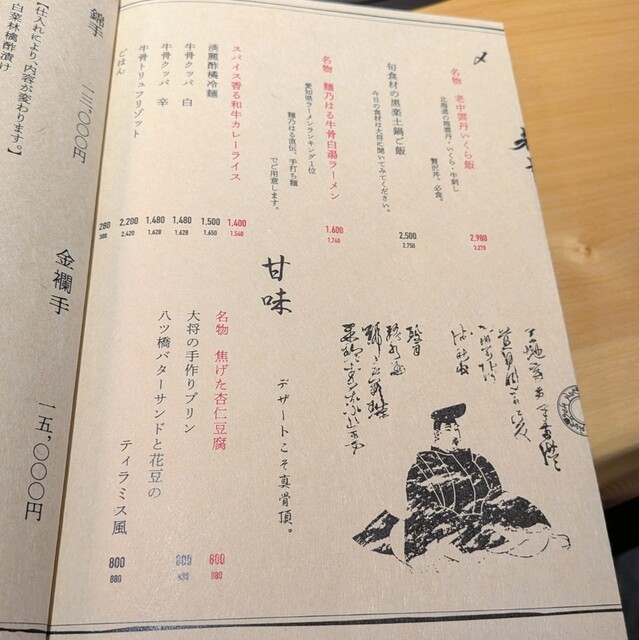 〆
名物 老中雲丹いくら飯
北海道の雲丹・いくら・牛刺し
贅沢丼。必食。
2,980
3.278
旬食材の黒楽土鍋ご飯
今日の食材は大将に聞いてみてください。
2,500
2.750
名物 麺乃はる牛骨白湯ラーメン
愛知県ラーメンランキング1位
麺乃はる直伝、手打ち麺
でご用意します。
1,600
1.760
スパイス香る和牛カレーライス
1,400
1.540
淡麗酢橘冷麺
1,500
1.650
牛骨クッパ 白
1,480
1.628
牛骨クッパ 辛
1,480
1.628
牛骨トリュフリゾット
2,200
2.420
ごはん
280
308
甘味
デザートこそ真骨頂。
名物 焦げた杏仁豆腐
800
880
大将の手作りプリン
八ッ橋バターサンドと花豆の
ティラミス風
800
880
錦手
一三〇〇〇円
金襴手
一五、〇〇〇円
【仕入れにより、内容が変わります。】
白菜林檎酢漬け